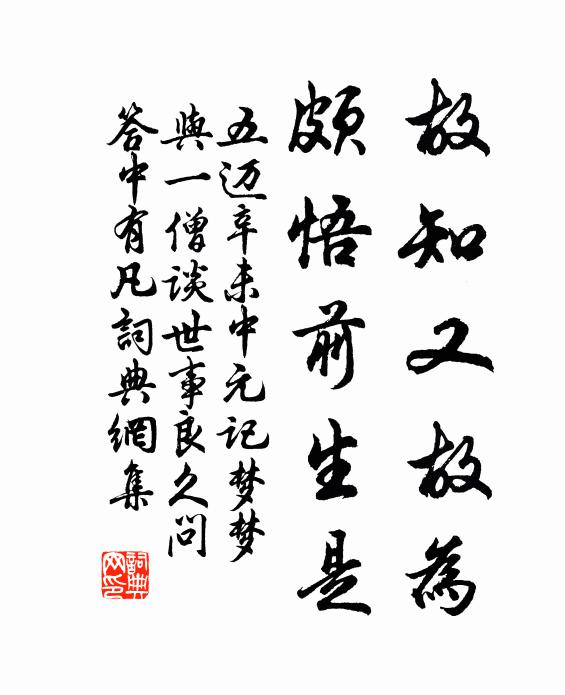 故知又故為
頗悟前生是
五迈辛未中元记梦梦
與一僧談世事良久問
答中有凡詞典網集
詞典网印